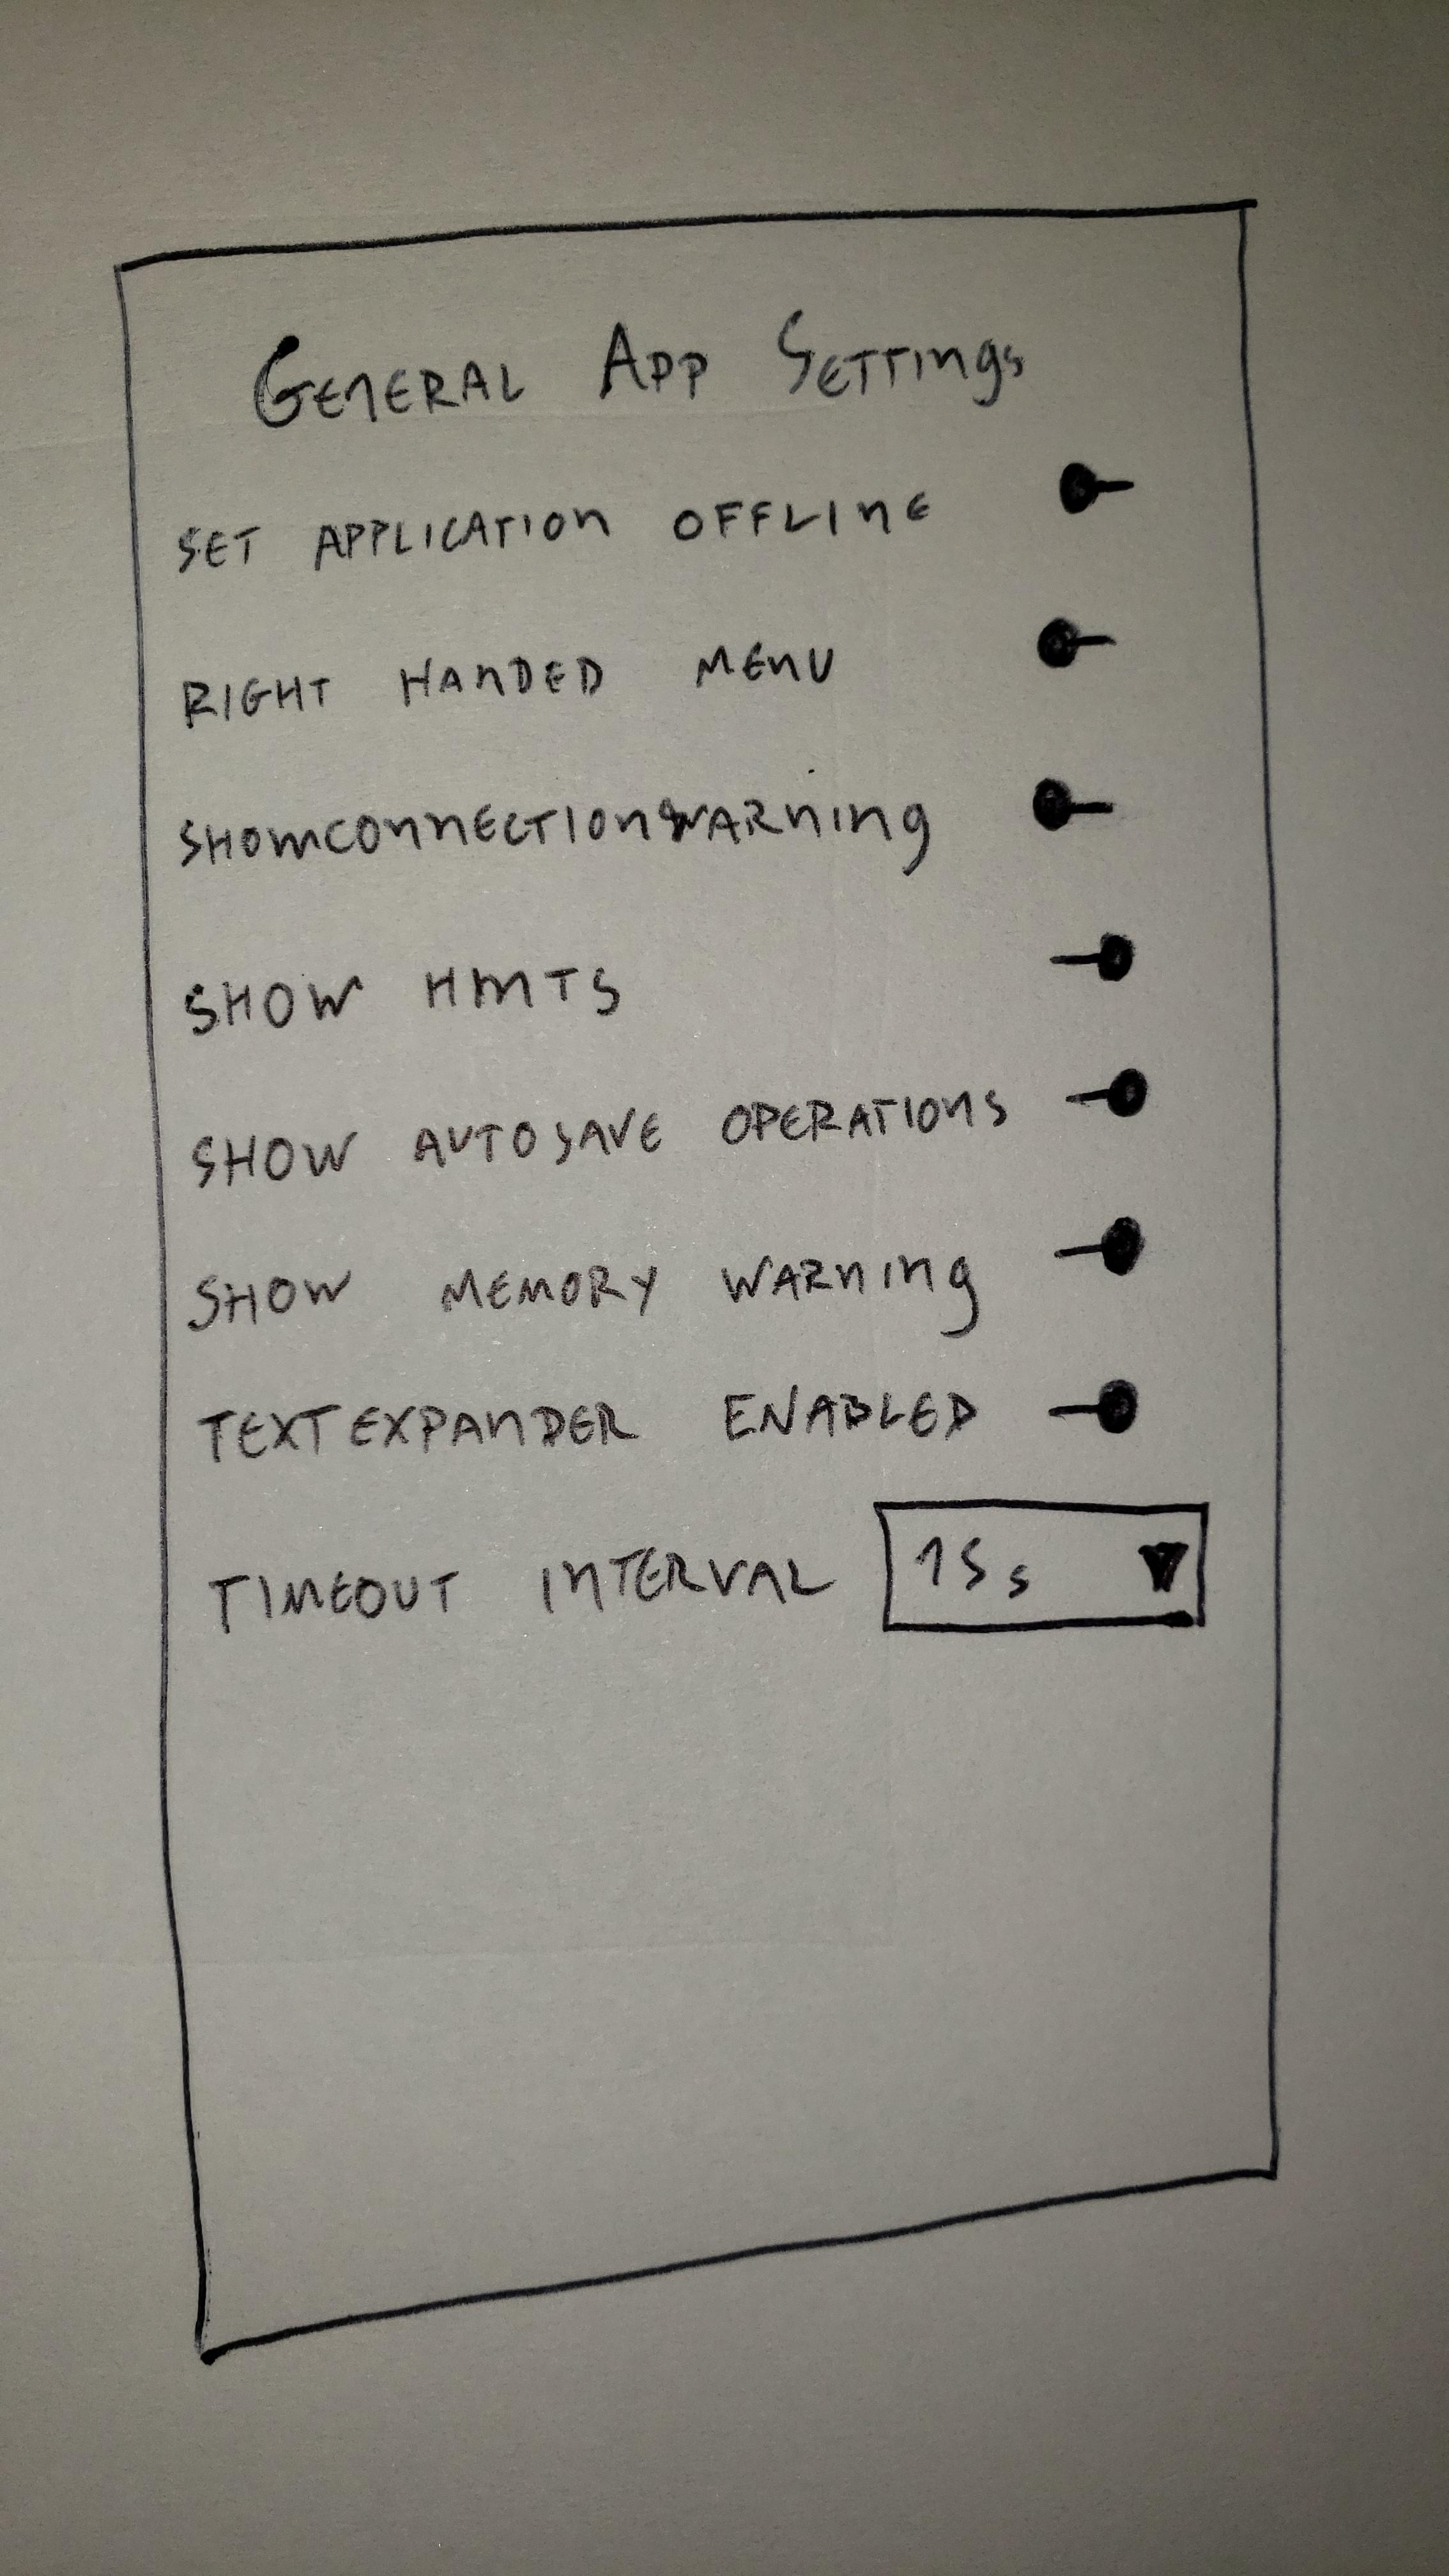 General App Settings
SET APPLICATION OFFLINE
RIGHT HANDED MENU
SHOW CONNECTION WARNING
SHOW HINTS
SHOW AUTOSAVE OPERATIONS
SHOW MEMORY WARNING
TEXTEXPANDER ENABLED
TIMEOUT INTERVAL 15s